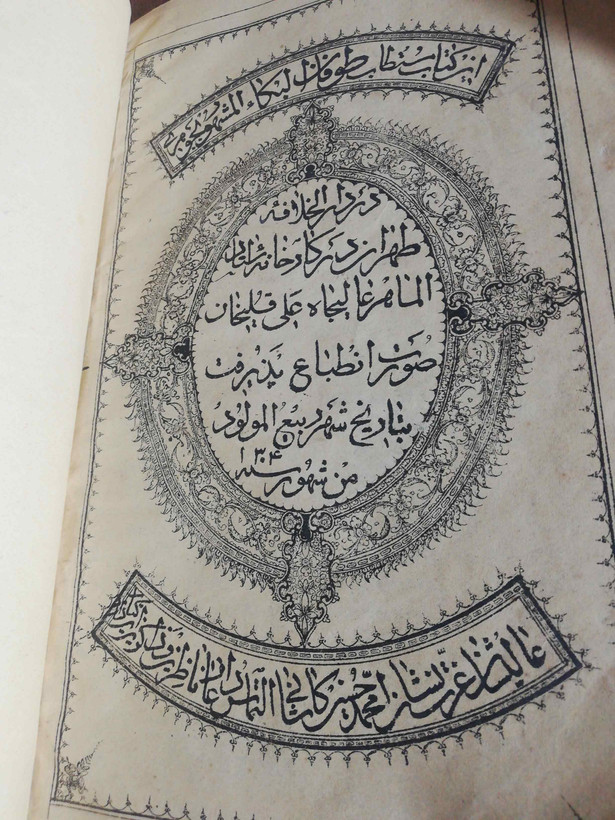 این کتاب مستطاب طوفان البکاء المشهور بجوهری
در دار الخلافه
طهران در کارخانه استاد
الماهر عالیجاه علی قلیخان
صورت انطباع پذیرفت
بتاریخ شهر ربیع المولود
من شهور سنه ۱۳۰۴
عالیشأن عزت نشان محمد حسین کاشانی التماس دعا از ناظرین